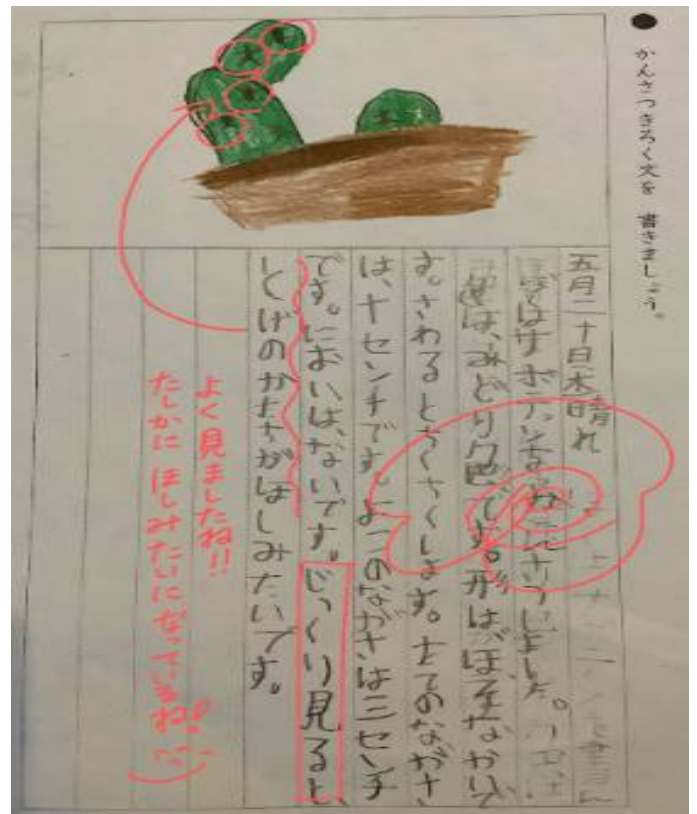 ● かんさつきろく文を 書きましょう。
五月二十日(木)晴れ
ぼくはサボテンを
色は、みどり色です。形は、ほそながいで
す。さわるとちくちくします。たてのながさ
は、十センチです。よこのながさは三センチ
です。においは、ないです。じっくり見ると、
とげのかたちがほしみたいです。
よく見ましたね!!
たしかに ほしみたいになっているね!